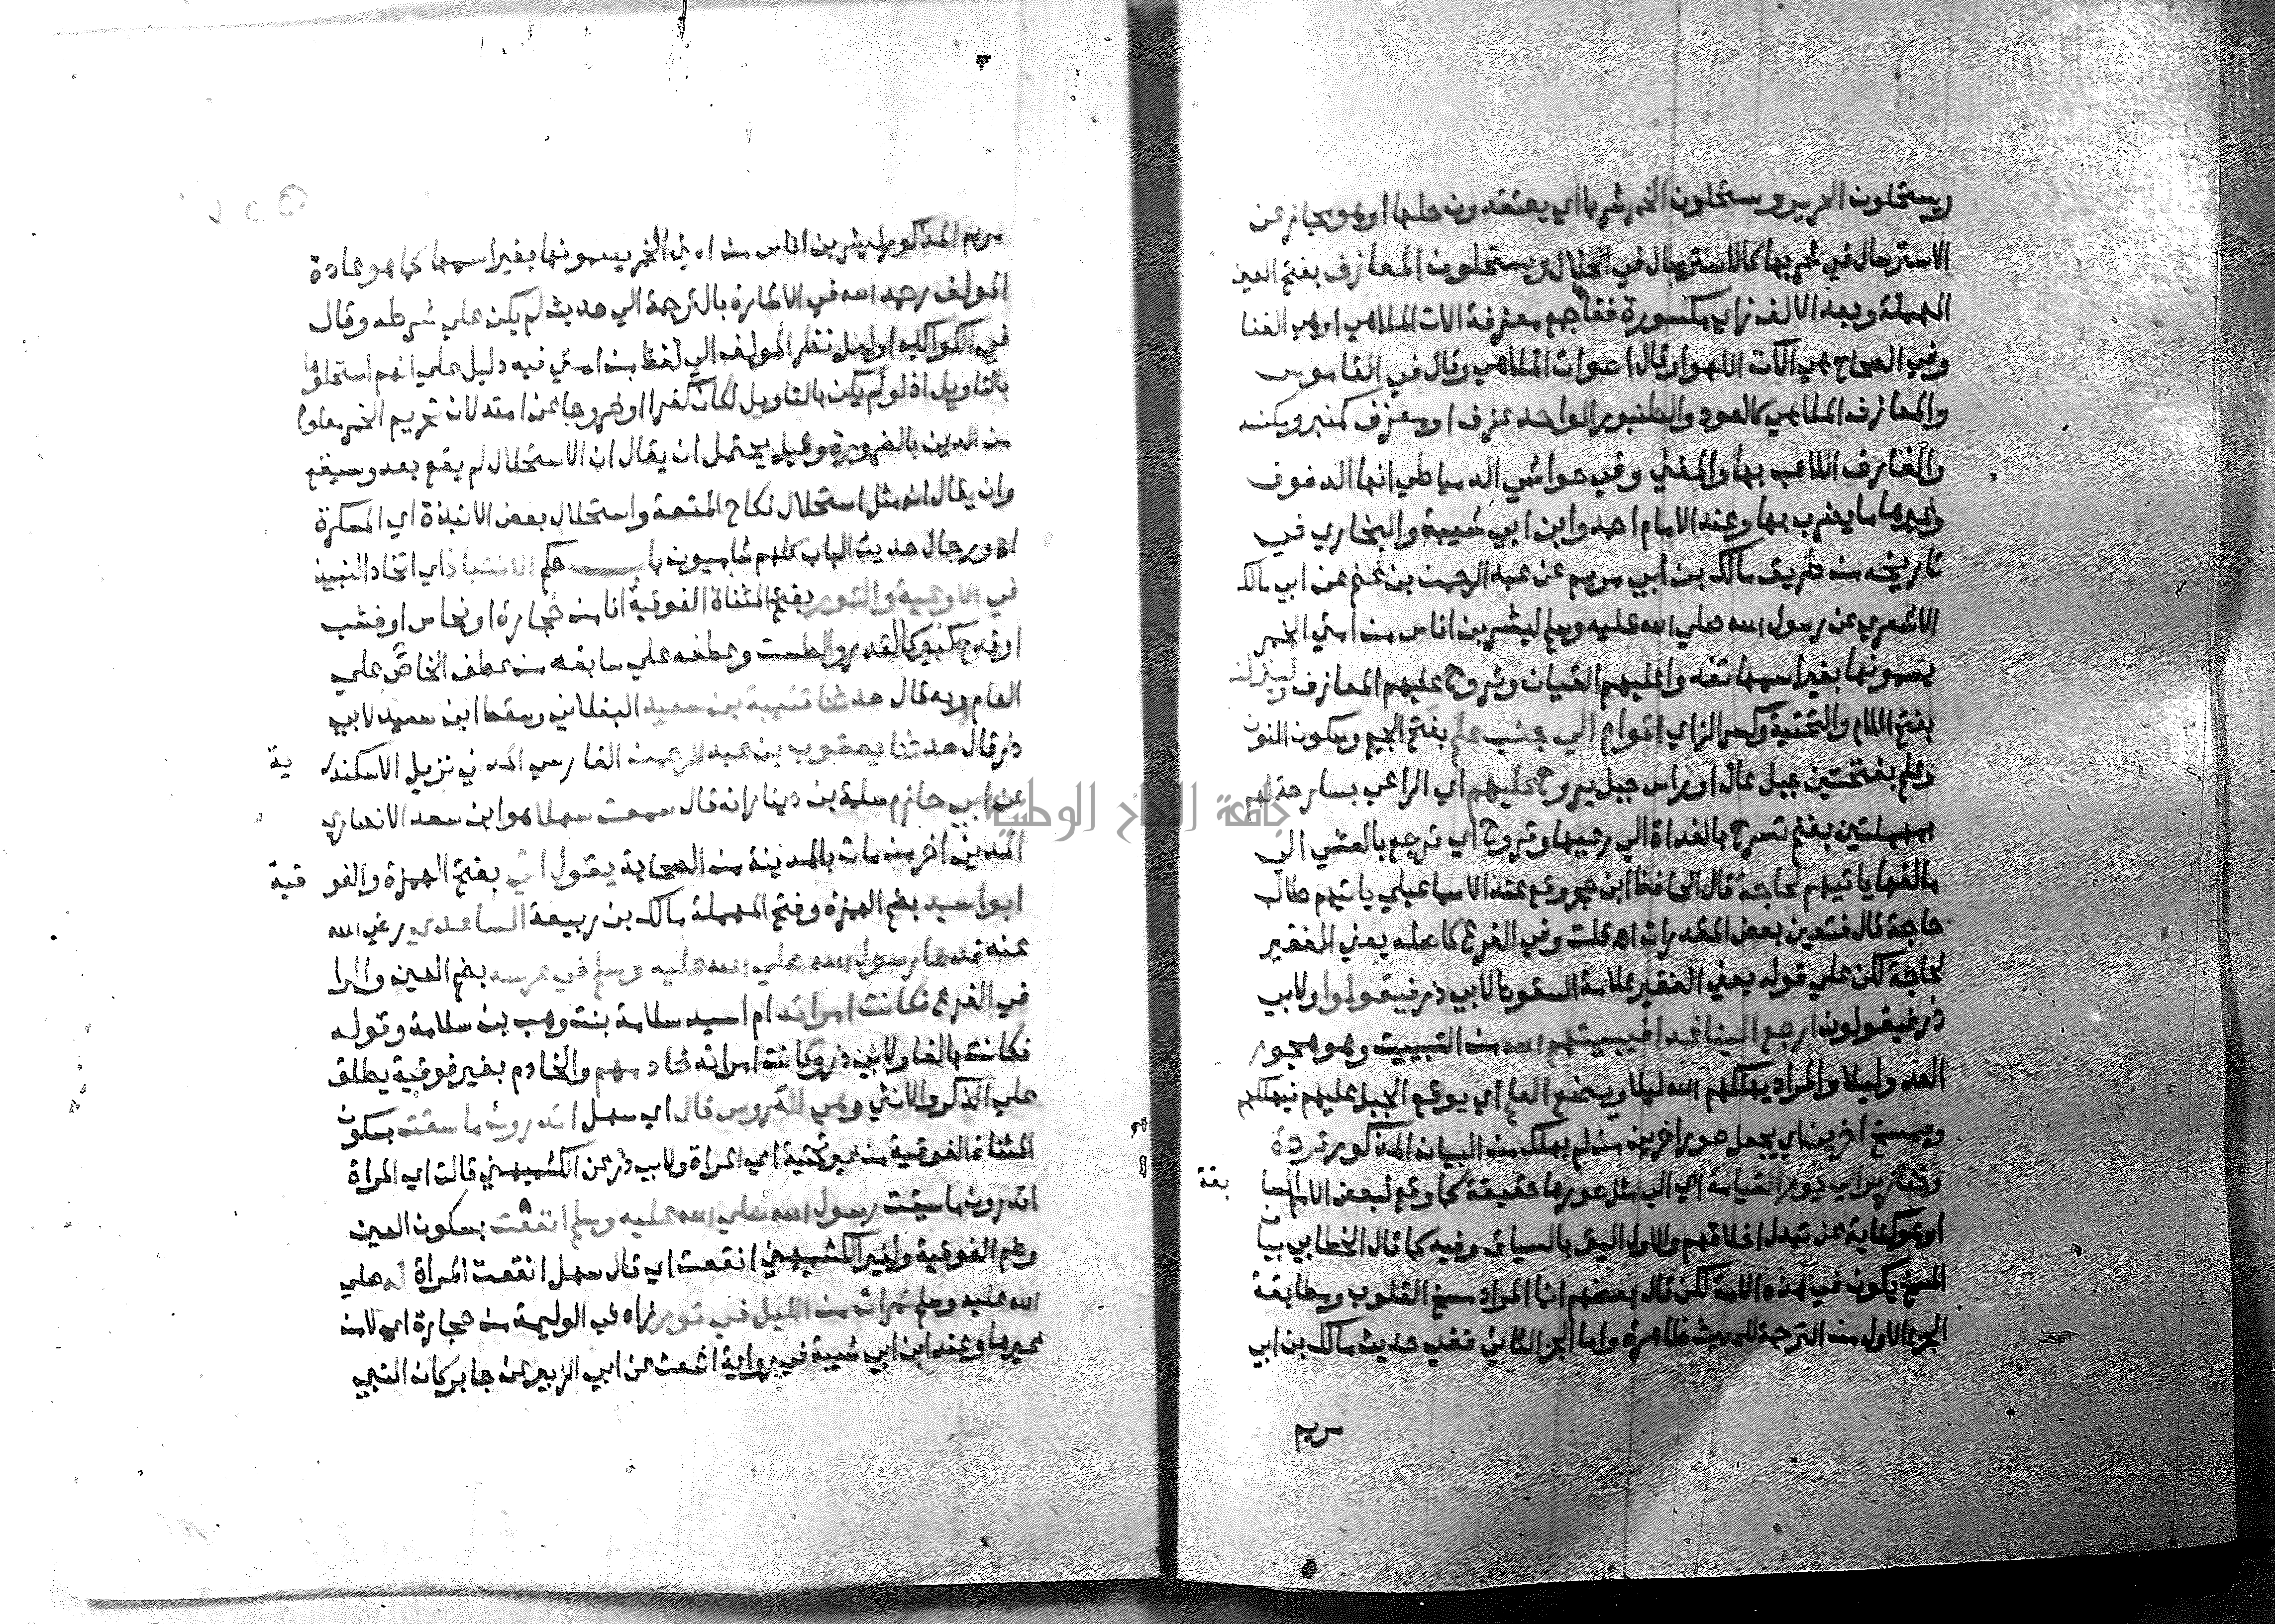 ويستحلون الحرير ويستحلون الخمر شربا اي يعتقدون حلها او هو مجاز عن
الاسترسال في شربها كالاسترسال في الحلال ويستحلون المعازف بفتح العين
المهملة وبعد الالف زاي مكسورة ففا جمع معزفة الات الملاهي او هي الغنا
وفي الصحاح هي الات اللهو او قال اصوات الملاهي وقال في القاموس
والمعازف الملاهي كالعود والطنبور الواحد عزف او معزف كمنبر ومكنسة
والعازف اللاعب بها والمغني وفي حواشي الدمياطي انها الدفوف
وغيرها مما يضرب بها وعند الامام احمد وابن ابي شيبة والبخاري في
تاريخه من طريق مالك بن ابي مريم عن عبد الرحمن بن غنم عن ابي مالك
الاشعري عن رسول الله صلي الله عليه وسلم ليشربن اناس من امتي الخمر
يسمونها بغير اسمها تغدو عليهم القيان وتروح عليهم المعازف ولينزلن
بفتح اللام والتحتية وكسر الزاي اقوام الي جنب علم بفتح الجيم وسكون النون
وعلم بفتحتين جبل عال او راس جبل يروح عليهم اي الراعي بسارحة لهم
بمهملتين بغنم تسرح بالغداة الي رعيها وتروح اي ترجع بالعشي الي
مالفها ياتيهم لحاجة قال الحافظ ابن حجر وقع عند الاسماعيلي ياتيهم طالب
حاجة قال فتعين بعض المقدرات اهـ قلت وفي الفرع كاصله يعني الفقير
لحاجة لكن علي قوله يعني الفقير علامة السقوط لابي ذر فيقولوا ولابي
ذر فيقولون ارجع الينا غدا فيبيتهم الله من التبييت وهو هجوم
العدو ليلا والمراد يهلكهم الله ليلا ويضع العلم اي يوقع الجبل عليهم فيهلكهم
ويمسخ اخرين اي يجعل صور اخرين من لم يهلك من البيات المذكور قردة
وخنازير الي يوم القيامة اي الي مثل صورها حقيقة كما وقع لبعض الامم السا بقة
او هو كناية عن تبدل اخلاقهم والاول اليق بالسياق وفيه كما قال الخطابي بيان
المسخ يكون في هذه الامة لكن قال بعضهم انما المراد مسخ القلوب ومطابقة
الجزء الاول من الترجمة للحديث ظاهرة واما الجزء الثاني ففي حديث مالك بن ابي
مريم
مريم المذكور ليشربن اناس من امتي الخمر يسمونها بغير اسمها كما هو عادة
المولف رحمه الله في الاشارة بالترجمة الي حديث لم يكن علي شرطه وقال
في الكواكب او لعل نظر المولف الي لفظ من امتي فيه دليل علي انهم استحلوها
بالتاويل اذ لو لم يكن بالتاويل لكان كفرا او خروجا عن امته لان تحريم الخمر معلوم
من الدين بالضرورة وقيل يحتمل ان يقال ان الاستحلال لم يقع بعد وسيقع
وان يقال انه مثل استحلال نكاح المتعة واستحلال بعض الانبذة اي المسكرة
اهـ ورجال حديث الباب كلهم شاميون باب حكم الانتباذ اي اتخاذ النبيذ
في الاوعية والتور بفتح المثناة الفوقية انا من حجارة او نحاس او خشب
او قدح كبير كالقدر والطست وعطفه علي سابقه من عطف الخاص علي
العام وبه قال حدثنا قتيبة بن سعيد البغلاني وسقط ابن سعيد لابي
ذر قال حدثنا يعقوب بن عبد الرحمن الفارسي المدني نزيل الاسكندر ية
عن ابي حازم سلمة بن دينار انه قال سمعت سهلا هو ابن سعد الانصاري
المدني اخر من مات بالمدينة من الصحابة يقول اتي بفتح الهمزة والفو قية
ابو اسيد بضم الهمزة وفتح المهملة مالك بن ربيعة الساعدي رضي الله
عنه فدعا رسول الله صلي الله عليه وسلم في عرسه بضم العين والرا
في الفرع فكانت امراته ام اسيد سلامة بنت وهب بن سلامة وقوله
فكانت بالفا ولابي ذر وكانت امراته خادمهم والخادم بغير فوقية يطلق
علي الذكر والانثي وهي العروس قال اي سهل اتدرون ما سقت بسكون
المثناة الفوقية من غير تحتية اي المراة ولابي ذر عن الكشميهني قالت اي المراة
اتدرون ما سقيت رسول الله صلي الله عليه وسلم انقعت بسكون العين
وضم الفوقية ولغير الكشميهني انقعت اي قال سهل انقعت المراة له صلي
الله عليه وسلم تمرات من الليل في تور زاد في الوليمة من حجارة اي لا من
غيرها وعند ابن ابي شيبة في رواية اشعث عن ابي الزبير عن جابر كان النبي
جامعة النجاح الوطنية